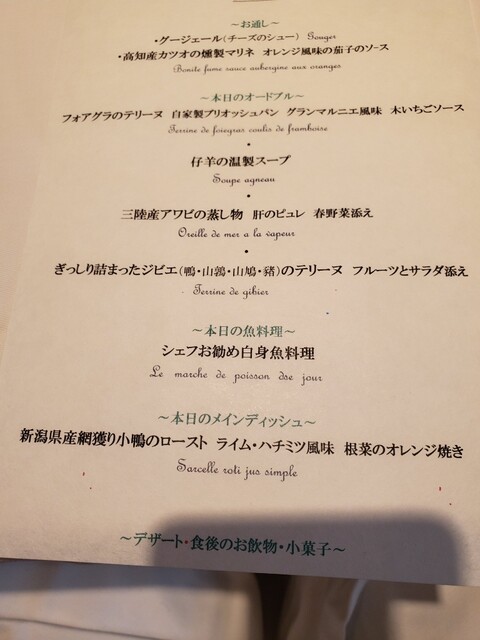 ～お通し～
・グージェール（チーズのシュー） Gouger
・高知産カツオの燻製マリネ オレンジ風味の茄子のソース
Bonite fume sauce aubergine aux oranges
～本日のオードブル～
フォアグラのテリーヌ 自家製ブリオッシュパン グランマルニエ風味 木いちごソース
Terrine de foiegras coulis de framboise
・
仔羊の温製スープ
Soupe agneau
・
三陸産アワビの蒸し物 肝のピュレ 春野菜添え
Oreille de mer a la vapeur
・
ぎっしり詰まったジビエ（鴨・山鶉・山鳩・猪）のテリーヌ フルーツとサラダ添え
Terrine de gibier
～本日の魚料理～
シェフお勧め白身魚料理
Le marche de poisson dse jour
～本日のメインディッシュ～
新潟県産網獲り小鴨のロースト ライム・ハチミツ風味 根菜のオレンジ焼き
Sarcelle roti jus simple
～デザート・食後のお飲物・小菓子～